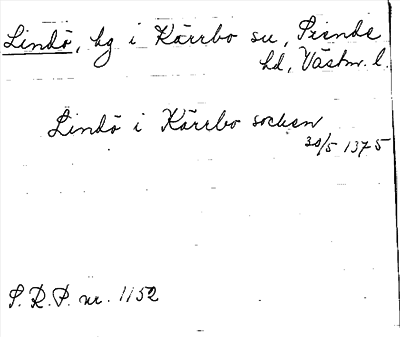 Lindö, hg i Kärrbo sn, Siende
hd, Västm. l.
Lindö i Kärrbo socken
30/5 1375
S.R.P. nr. 1152